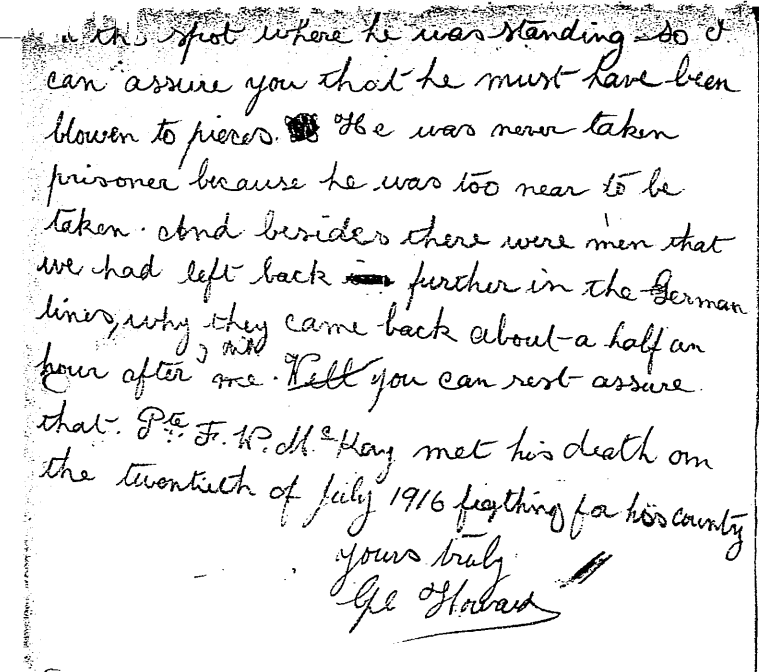 the spot where he was standing - so I
can assure you that he must have been
blowen to pieces. He was never taken
prisoner because he was too near to be
taken. And besides there were men that
we had left back further in the German
lines, why they came back about a half an
hour after me. Well you can rest assure
that. Pte. F. W. McKay met his death on
the twentieth of July 1916 figthing for his county
yours truly
Howard